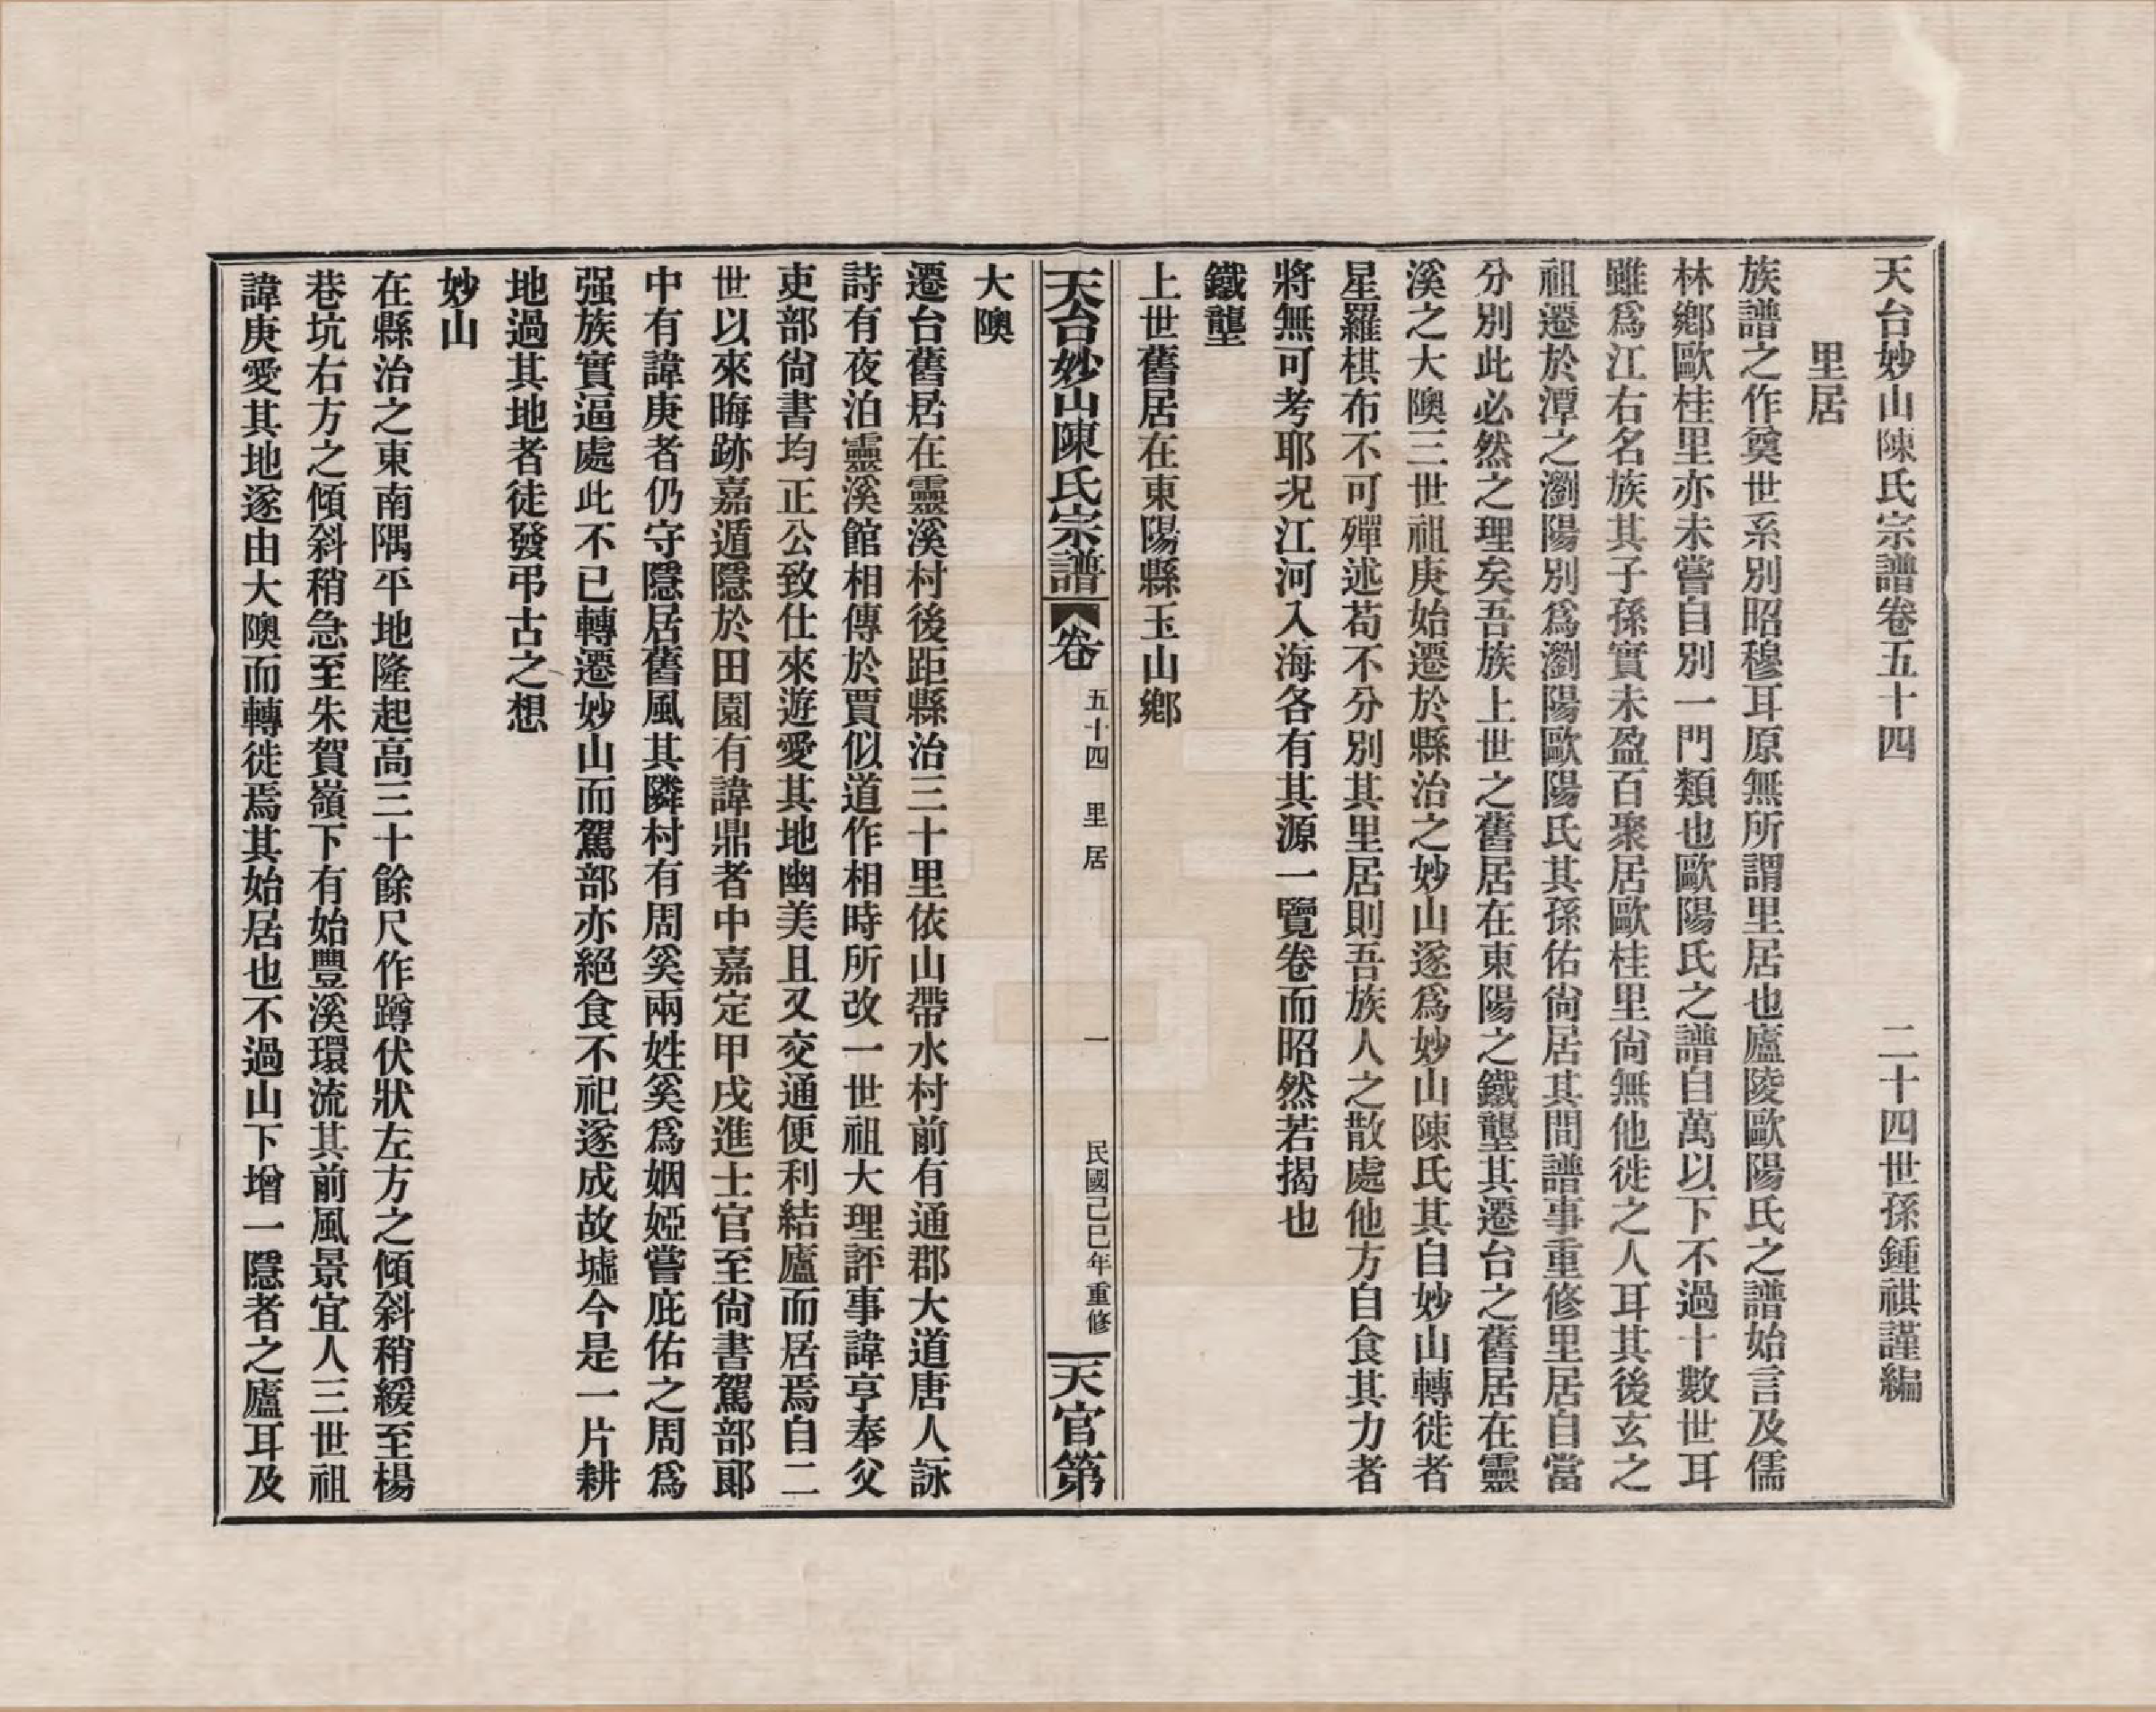 天台妙山陳氏宗譜卷五十四　二十四世孫鍾祺謹編
里居
族譜之作奠世系別昭穆耳原無所謂里居也廬陵歐陽氏之譜始言及儒
林鄉歐桂里亦未嘗自別一門類也歐陽氏之譜自萬以下不過十數世耳
雖爲江右名族其子孫實未盈百聚居歐桂里尙無他徙之人耳其後玄之
祖遷於潭之瀏陽別爲瀏陽歐陽氏其孫佑尙居其間譜事重修里居自當
分別此必然之理矣吾族上世之舊居在東陽之鐵壟其遷台之舊居在靈
溪之大隩三世祖庚始遷於縣治之妙山遂爲妙山陳氏其自妙山轉徙者
星羅棋布不可殫述苟不分別其里居則吾族人之散處他方自食其力者
將無可考耶况江河入海各有其源一覽卷而昭然若揭也
鐵壟
上世舊居在東陽縣玉山鄉
天台妙山陳氏宗譜　卷　五十四　里居　一　民國己巳年重修　天官第
大隩
遷台舊居在靈溪村後距縣治三十里依山帶水村前有通郡大道唐人詠
詩有夜泊靈溪館相傳於賈似道作相時所改一世祖大理評事諱亨奉父
吏部尙書均正公致仕來遊愛其地幽美且又交通便利結廬而居焉自二
世以來晦跡嘉遁隱於田園有諱鼎者中嘉定甲戌進士官至尙書駕部郞
中有諱庚者仍守隱居舊風其隣村有周奚兩姓奚爲姻婭嘗庇佑之周爲
强族實逼處此不已轉遷妙山而駕部亦絕食不祀遂成故墟今是一片耕
地過其地者徒發弔古之想
妙山
在縣治之東南隅平地隆起高三十餘尺作蹲伏狀左方之傾斜稍緩至楊
巷坑右方之傾斜稍急至朱賀嶺下有始豐溪環流其前風景宜人三世祖
諱庚愛其地遂由大隩而轉徙焉其始居也不過山下增一隱者之廬耳及